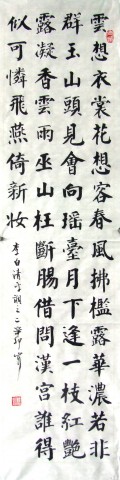 雲想衣裳花想容春風拂檻露華濃若非
群玉山頭見會向瑤臺月下逢一枝紅艷
露凝香雲雨巫山枉斷腸借問漢宮誰得
似可憐飛燕倚新妝
李白清平調之二辛卯